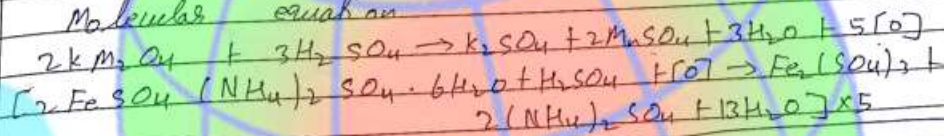 Molecular equation
2KMnO4 + 3H2SO4 → K2SO4 + 2MnSO4 + 3H2O + 5[O]
[2FeSO4 (NH4)2 SO4 · 6H2O + H2SO4 + [O] → Fe2(SO4)3 +
2(NH4)2 SO4 + 13H2O] × 5